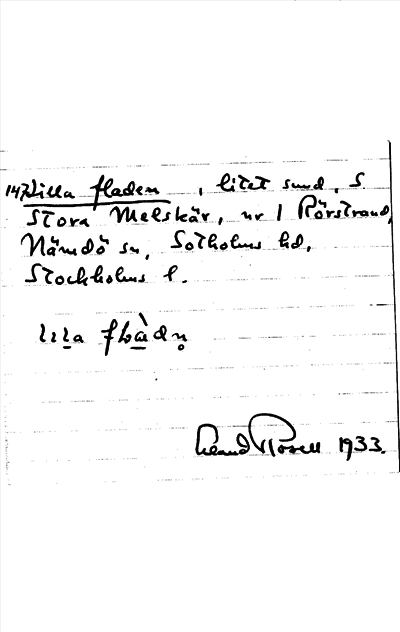 147 Lilla fladen, litet sund, S
Stora Melskär, nr 1 Rörstrand,
Nämdö sn, Sotholms hd,
Stockholms l.
lɩla flàdn̥
1933.